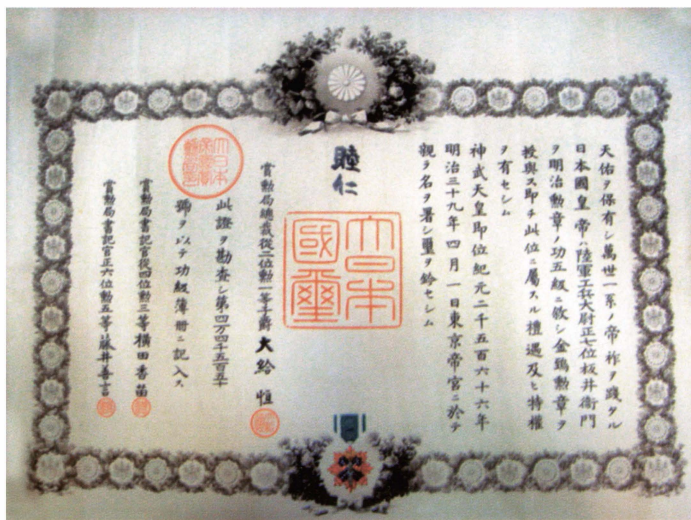 天佑ヲ保有シ萬世一系ノ帝祚ヲ踐タル
日本國皇帝ハ陸軍工兵大尉正七位板井衛門
ヲ明治勲章ノ功五級ニ敘シ金鵄勲章ヲ
授與ス即チ此位ニ屬スル禮遇及ヒ特權
ヲ有セシム
神武天皇即位紀元二千五百六十六年
明治三十九年四月一日東京帝宮ニ於テ
親ラ名ヲ署シ璽ヲ鈐セシム
睦仁
大日本
國璽
賞勲局總裁從二位勲一等子爵大給恒
此證ヲ勘査シ第四万四千五百五十
號ヲ以テ功級簿冊ニ記入ス
賞勲局書記官從四位勲三等橫田香苗
賞勲局書記官正六位勲五等藤井善言